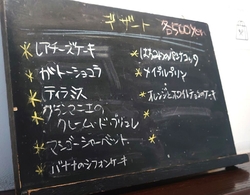 デザート 各500えん
レアチーズケーキ
ガトーショコラ
ティラミス
グランマニエの
クレームドブリュレ
マンゴーシャーベット
バナナのシフォンケーキ
はちみつのパンナコッタ
メイプルプリン
オレンジとホワイトチョコのケーキ